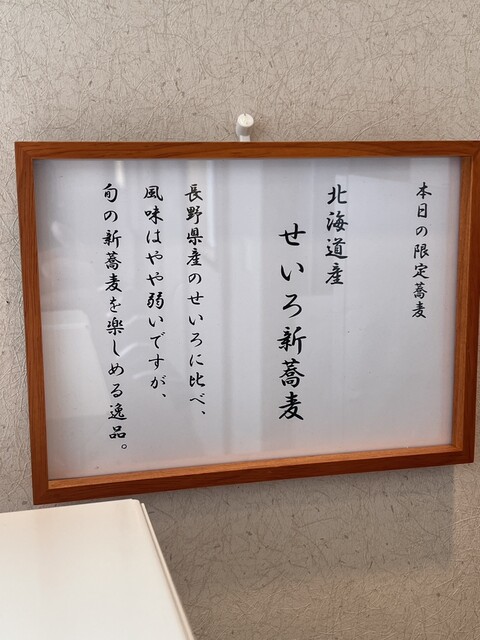 本日の限定蕎麦
北海道産
せいろ新蕎麦
長野県産のせいろに比べ、
風味はやや弱いですが、
旬の新蕎麦を楽しめる逸品。